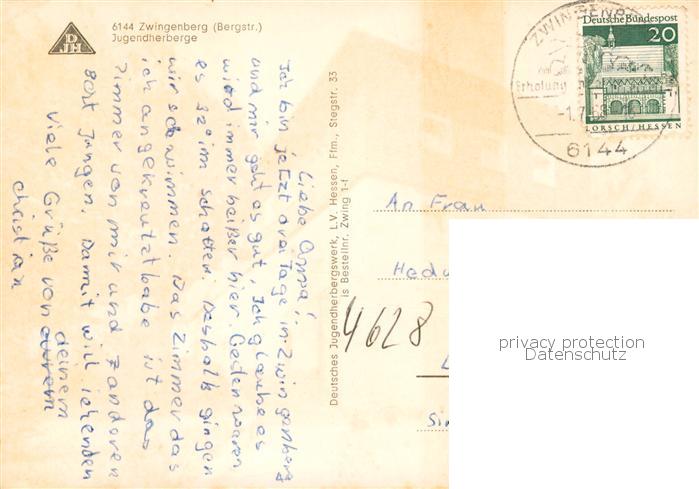 DJH
6144 Zwingenberg (Bergstr.)
Jugendherberge
Liebe Oma!
Ich bin jetzt drei Tage in Zwingenberg
und mir geht es gut, Ich glaube es
wird immer heißer hier. Gestern waren
es 32° im Schatten. Deshalb gingen
wir schwimmen. Das Zimmer das
ich angekreuzt habe ist das
Zimmer von mir und 7 anderen
Jungen. Damit will ich enden
Viele Grüße von
deinem
Christian
Deutsches Jugendherbergswerk, L.V. Hessen, Ffm., Stegstr. 33
is Bestellnr. Zwing 1-f
ZWINGENBERG
Erholung
6144
Deutsche Bundespost
20
LORSCH/HESSEN
An Frau
Hedw
4628
Sin
privacy protection
Datenschutz